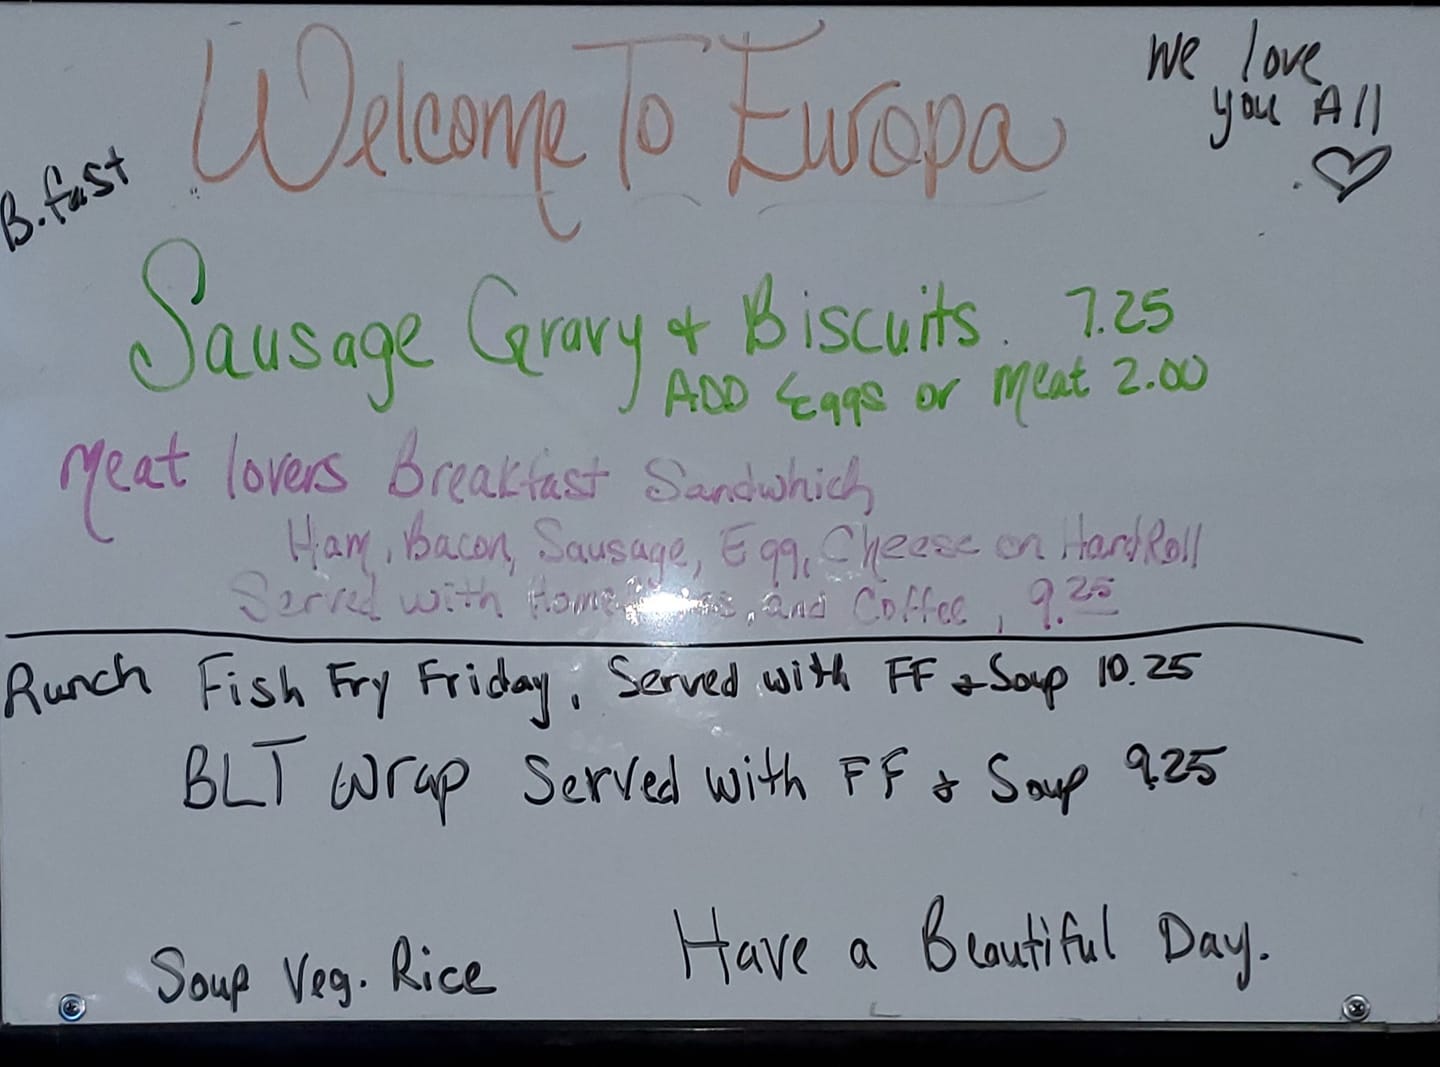 Welcome To Europa
We love
you All
B.fast
Sausage Gravy & Biscuits. 7.25
ADD Eggs or Meat 2.00
Meat lovers Breakfast Sandwhich
Ham, Bacon, Sausage, Egg, Cheese on Hard Roll
Served with and Coffee, 9.25
Runch Fish Fry Friday. Served with FF & Soup 10.25
BLT Wrap Served with FF & Soup 9.25
Soup Veg. Rice
Have a Beautiful Day.